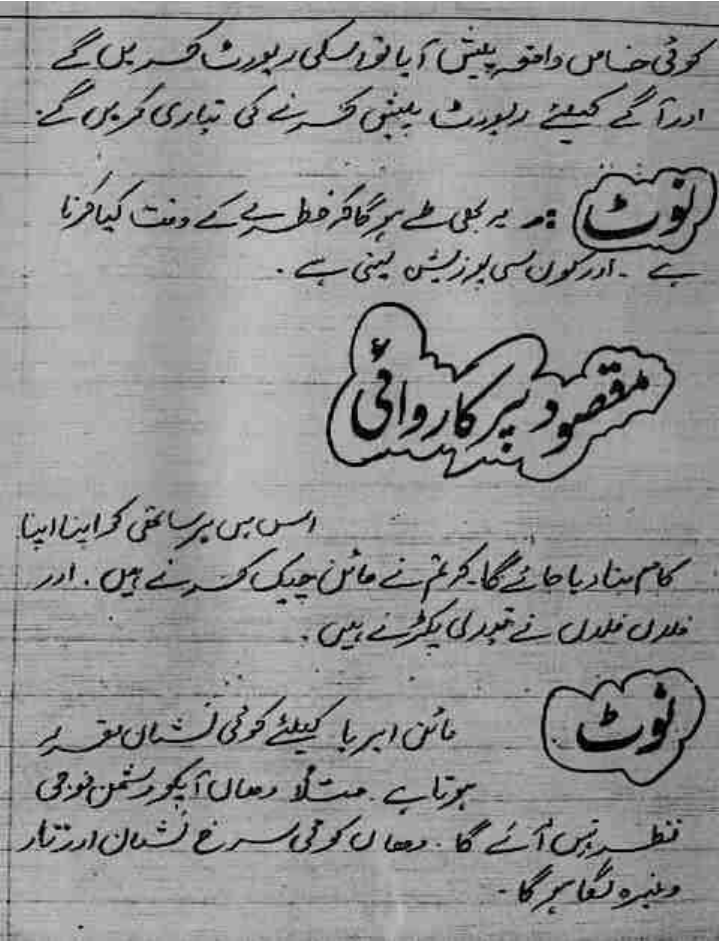 کوئی خاص واقعہ پیش آیا تو اسکی رپورٹ کریں گے
اور آگے کیلئے رپورٹ پیش کرنے کی تیاری کریں گے۔
نوٹ :۔ یہ بھی طے ہو گا کہ خطرے کے وقت کیا کرنا
ہے ۔ اور کون سی پوزیشن لینی ہے ۔
مقصود پر کاروائی
اس میں ہر ساتھی کو اپنا اپنا
کام بتا دیا جائے گا۔ کہ تم نے مائن چیک کرنے ہیں ۔ اور
فلاں فلاں نے قیدی پکڑنے ہیں ۔
نوٹ مائن ایریا کیلئے کوئی نشان مقرر
ہوتا ہے ۔ مثلاً وھاں آپکو دشمن فوجی
نظر نہیں آئے گا ۔ وھاں کوئی سرخ نشان اور تار
وغیرہ لگا ہو گا ۔